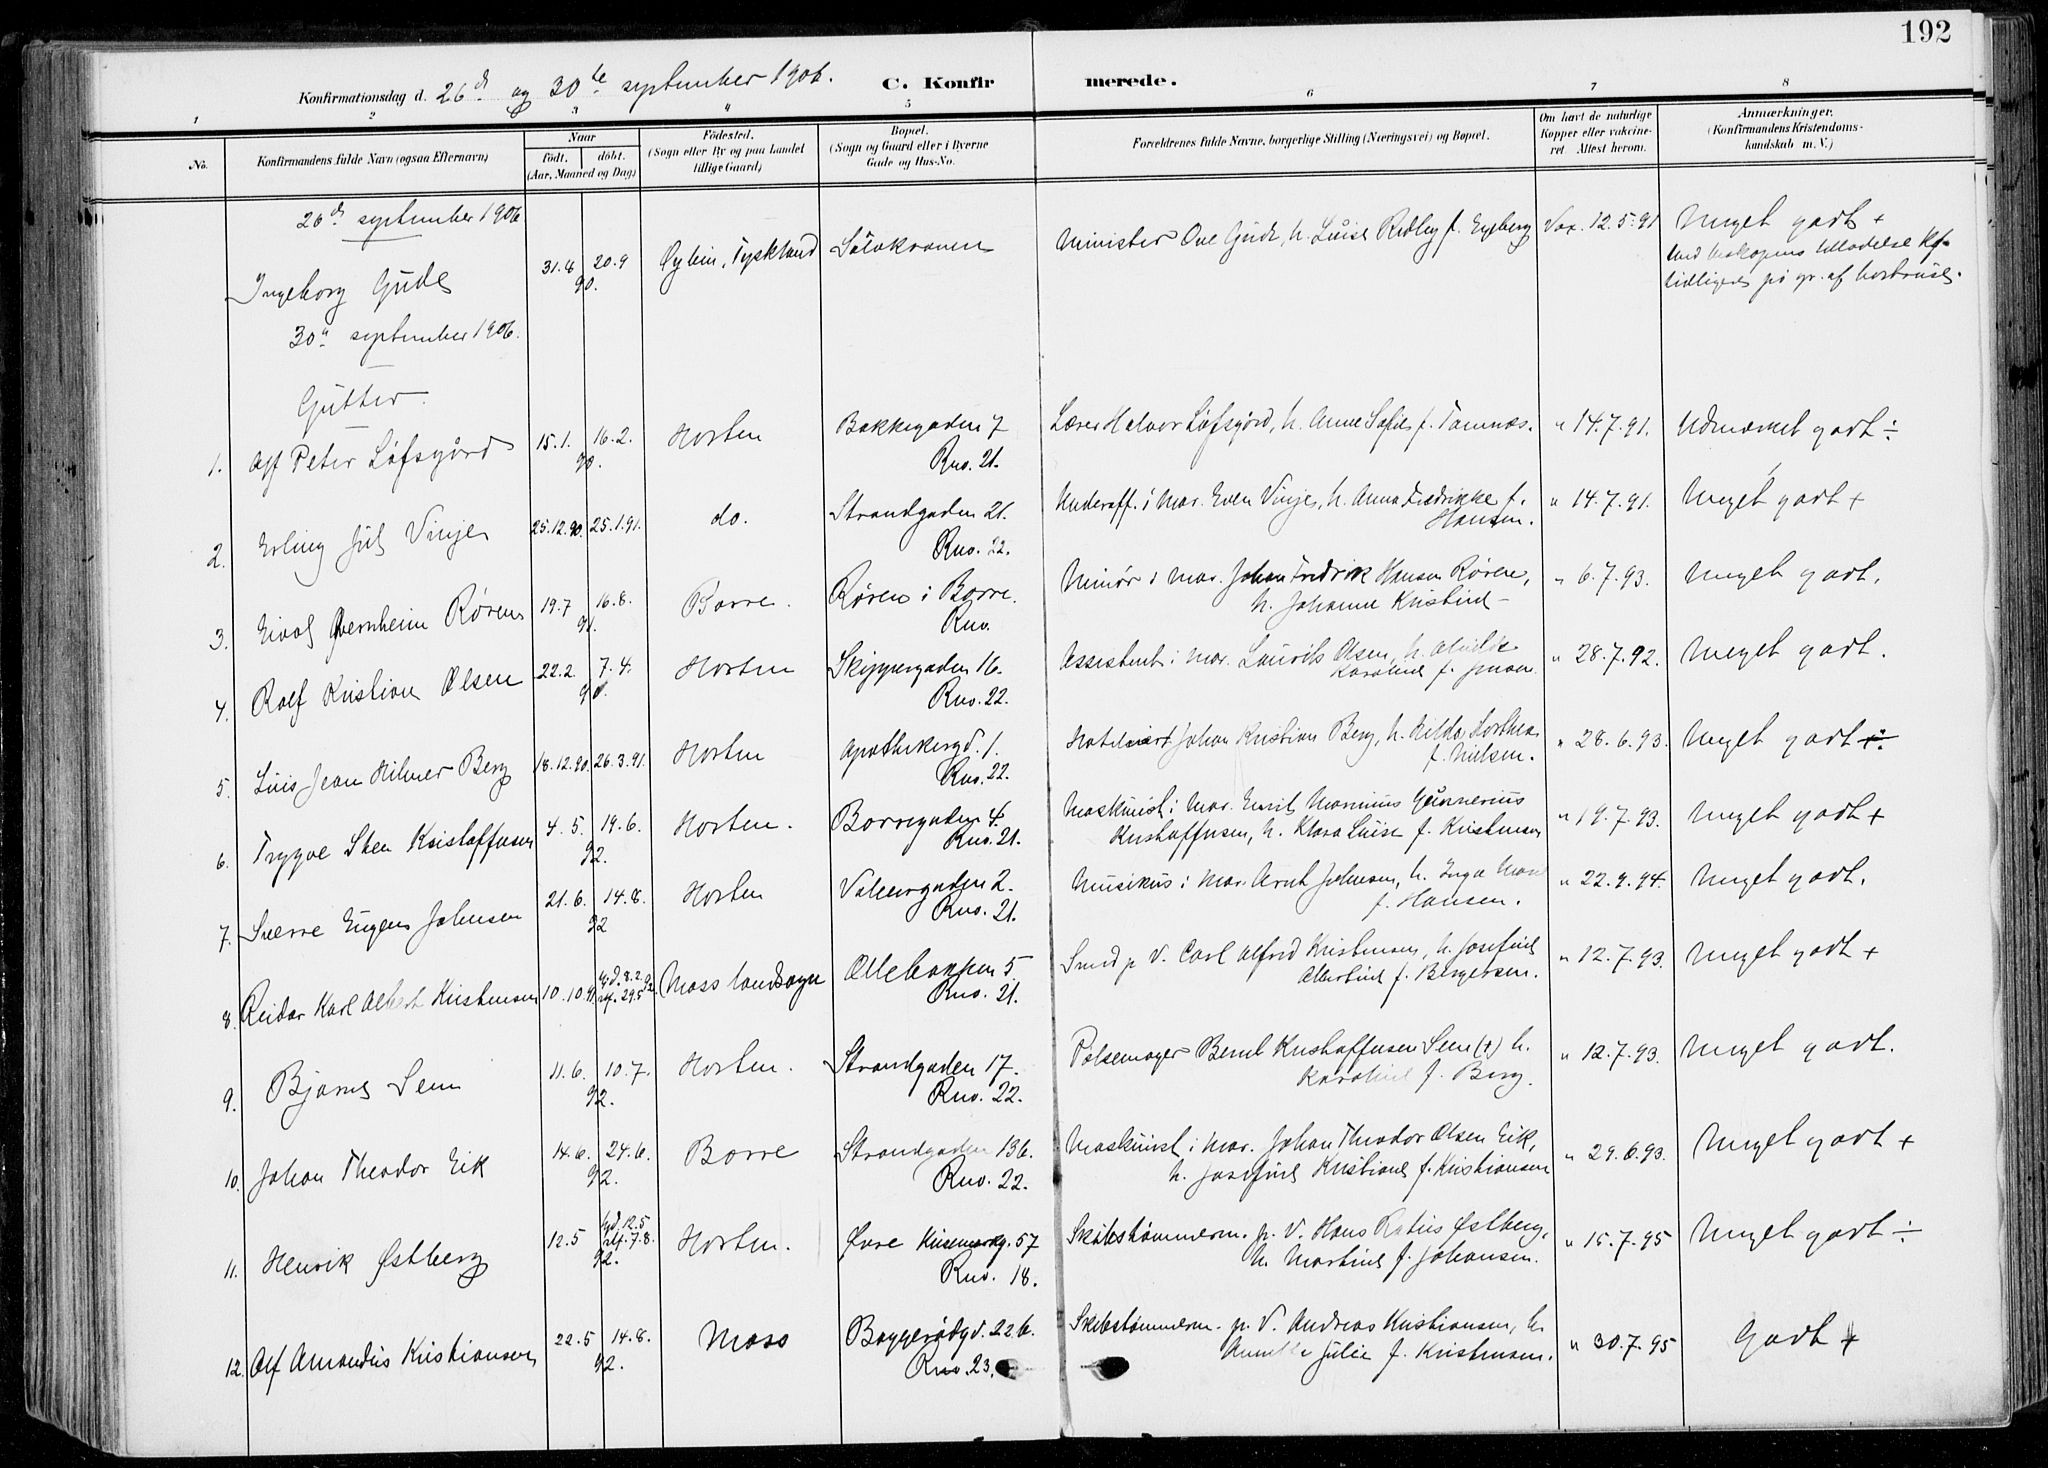 192
Konfirmationsdag d. 26de og 30te september 1906. C. Konfirmerede.
1 2 3 4 5 6 7 8
No.
Konfirmandens fulde Navn (ogsaa Efternavn)
Naar
født. døbt.
(Aar, Maaned og Dag)
Fødested.
(Sogn eller By og paa Landet
tillige Gaard)
Bopæl.
(Sogn og Gaard eller i Byerne
Gade og Hus-No.
Forældrenes fulde Navne, borgerlige Stilling (Næringsvei) og Bopæl.
Om havt de naturlige
Kopper eller vakcine-
ret. Attest herom.
Anmærkninger.
(Konfirmandens Kristendoms-
kundskab m. V.)
26de september 1906
Ingeborg Gude 31.8 20.9 90. Oybin, Tyskland Minister Ove Gude, h. Luise Ridley f. Vax. 12.5.91 Meget godt +
med biskopens tilladelse kf.
tidligere på gr. af bortreise.
30te september 1906.
Gutter.
1. Alf Peter Løfsgård 15.1. 16.2. 90. Horten Bakkegaden 7 Lærer Halvor Løfsgård, h. Anne Sofie f. Tamnæs. " 14.7.91. Udmærket godt ÷
Rnv. 21.
2. Erling Jul Vinje 25.12.90. 25.1.91. do. Strandgaden 21. Underoff. i Mar. Even Vinje, h. Anna Fredrikke f. " 14.7.91. Meget godt +
Hansen.
Rnv. 22.
3. Eivol Røren 19.7 16.8. 91. Borre. Røren i Borre. Minør i Mar. Johan Fredrik Hansen Røren, " 6.7.93. Meget godt.
h. Johanne Kristine –
Rnv.
4. Rolf Kristian Olsen 22.2. 7.4. 90. Horten Skippergaden 16. Assistent i Mar. Laurits Olsen, h. " 28.7.92. Meget godt.
Karoline f.
Rnv. 22.
5. Luis Jean Hilmer Berg 18.12.90. 26.3.91. Horten Apothekergd. 1. Hotelvært Johan Kristian Berg, h. Hilda Dorthea " 28.6.93. Meget godt
f. Nielsen.
Rnv. 22.
6. Trygve Sten Kristoffersen 4.5. 19.6. 92. Horten. Borregaden 4. Maskinist i Mar. Emil Marinius Gunnerius " 19.7.93. Meget godt +
Kristoffersen, h. Klara Luise f. Kristensen
Rnv. 21.
7. Sverre Eugen Johnsen 21.6. 14.8. 92 Horten Vollenergaden 2. Musikus i Mar. Arnt Johnsen, h. Inga Marie " 22.9.94. Meget godt.
f. Hansen.
Rnv. 21.
8. Reidar Karl Albert Kristensen 10.10.91. hjd. 8.2. stf. 29.5 92. Moss landsogn Ollebakken 5. Smed p. V. Carl Alfred Kristensen, h. Josefine " 12.7.93. Meget godt +
Albertine f. Birgersen.
Rnv. 21.
9. Bjarne Seem 11.6. 10.7. 92. Horten. Strandgaden 17. Pølsemager Bernt Kristoffersen Seem (†) h. " 12.7.93. Meget godt.
Karoline f. Berg.
Rnv. 22.
10. Johan Theodor Eik 14.6. 24.6. 92. Borre Strandgaden 136. Maskinist i Mar. Johan Theodor Olsen Eik, " 29.6.93. Meget godt +
h. Josefine Kristiane f. Kristiansen
Rnv. 22.
11. Henrik Østberg 12.5 hjd. 12.5 stf. 7.8. 92. Horten. Øvre Keisemarkg. 57 Skibstømmerm. p. V. Hans Østberg, " 15.7.95 Meget godt ÷
h. Martine f. Johansen.
Rnv. 18.
12. Alf Amandus Kristiansen 22.5 14.8. 92. Moss Baggerødgd. 22b. Skibstømmerm. p. V. Andreas Kristiansen, h. " 30.7.95 Godt +
Julie f. Kristensen.
Rnv. 23.